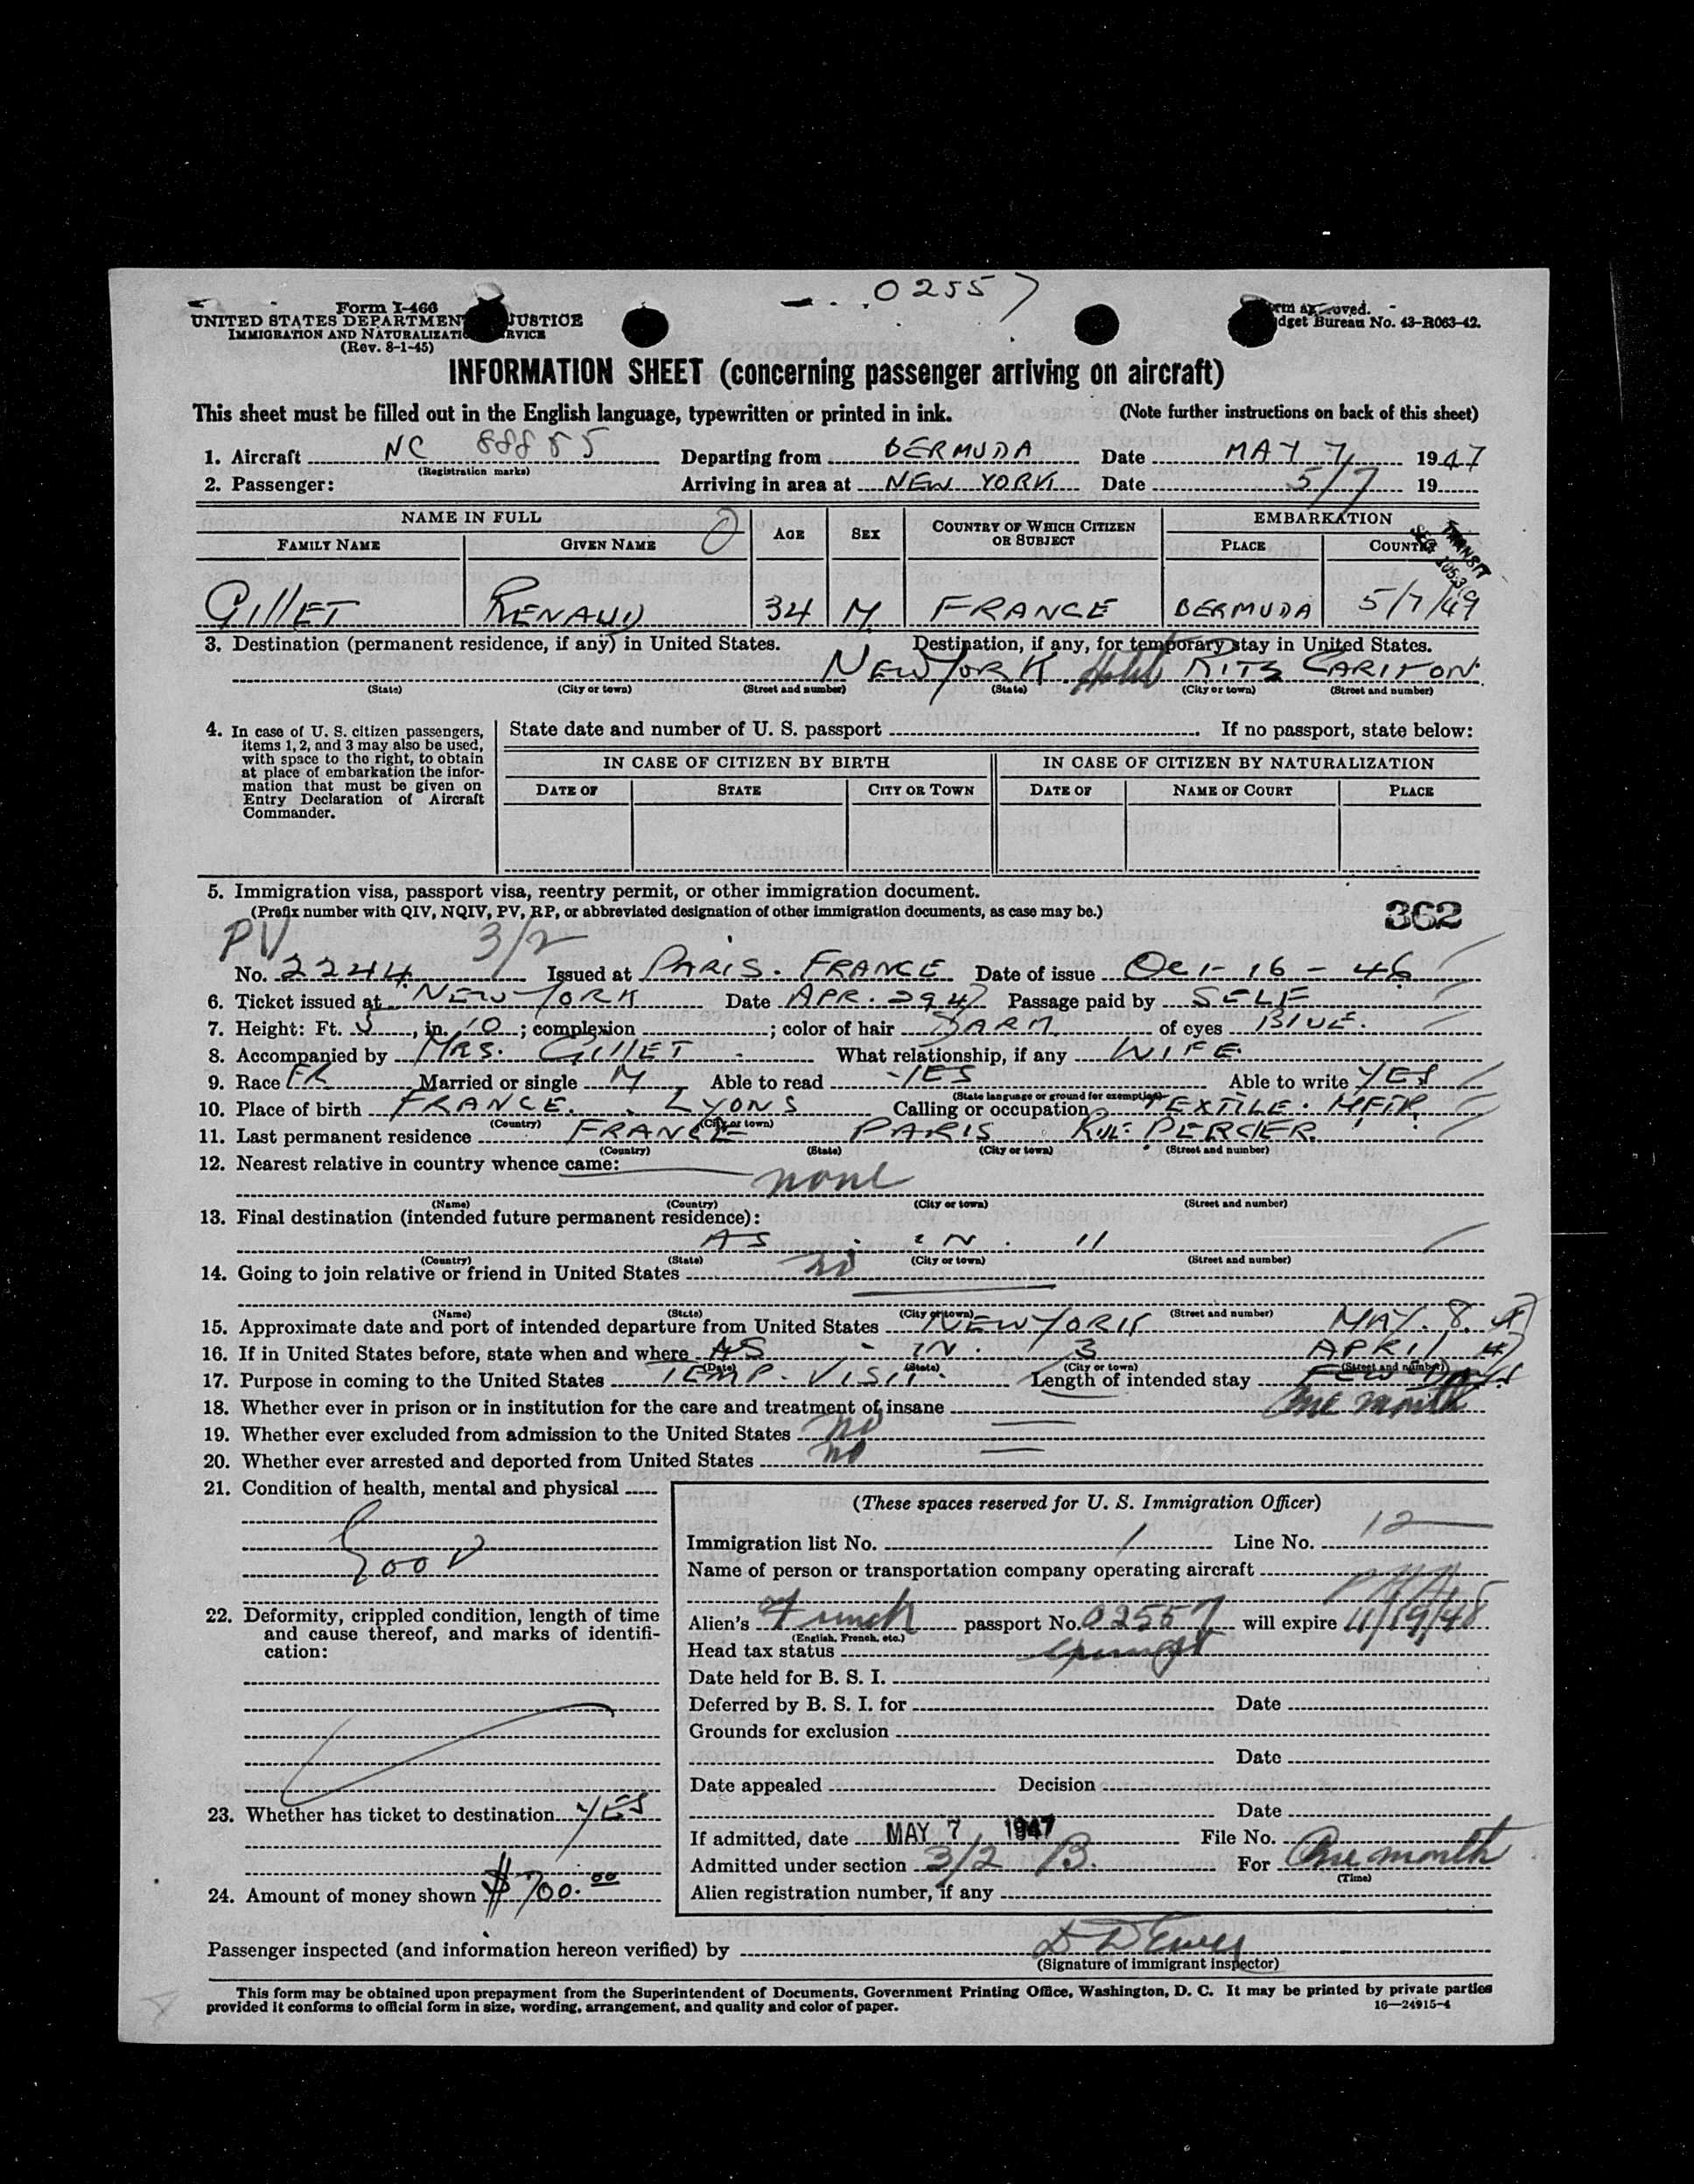 0 2 5 5 7
Form I-466
UNITED STATES DEPARTMENT JUSTICE
IMMIGRATION AND NATURALIZATION SERVICE
(Rev. 8-1-45)
Form approved.
Budget Bureau No. 43-R063-42.
INFORMATION SHEET (concerning passenger arriving on aircraft)
This sheet must be filled out in the English language, typewritten or printed in ink. (Note further instructions on back of this sheet)
1. Aircraft NC 88855 Departing from BERMUDA Date MAY 7, 1947
(Registration marks)
2. Passenger: Arriving in area at NEW YORK Date 5/7 19
NAME IN FULL AGE SEX COUNTRY OF WHICH CITIZEN OR SUBJECT EMBARKATION
FAMILY NAME GIVEN NAME PLACE COUNTRY
TRANSIT
GILLET RENAUD 34 M FRANCE BERMUDA 5/7/49
3. Destination (permanent residence, if any) in United States. Destination, if any, for temporary stay in United States.
NEW YORK Hotel RITZ CARLTON
(State) (City or town) (Street and number) (State) (City or town) (Street and number)
4. In case of U. S. citizen passengers, items 1, 2, and 3 may also be used, with space to the right, to obtain at place of embarkation the information that must be given on Entry Declaration of Aircraft Commander.
State date and number of U. S. passport If no passport, state below:
IN CASE OF CITIZEN BY BIRTH IN CASE OF CITIZEN BY NATURALIZATION
DATE OF STATE CITY OR TOWN DATE OF NAME OF COURT PLACE
5. Immigration visa, passport visa, reentry permit, or other immigration document.
(Prefix number with QIV, NQIV, PV, RP, or abbreviated designation of other immigration documents, as case may be.)
362
PV 3/2
No. 2244 Issued at PARIS. FRANCE Date of issue OCT - 16 - 46
6. Ticket issued at NEW YORK Date APR. 29 47 Passage paid by SELF
7. Height: Ft. 5, in. 10; complexion ; color of hair DARK of eyes BLUE.
8. Accompanied by MRS. GILLET What relationship, if any WIFE
9. Race FR Married or single M Able to read YES Able to write YES
(State language or ground for exemption)
10. Place of birth FRANCE. LYONS Calling or occupation TEXTILE. MFTR
(Country) (City or town)
11. Last permanent residence FRANCE PARIS RUE PERCIER
(Country) (State) (City or town) (Street and number)
12. Nearest relative in country whence came:
none
(Name) (Country) (City or town) (Street and number)
13. Final destination (intended future permanent residence):
AS IN 11
(Country) (State) (City or town) (Street and number)
14. Going to join relative or friend in United States no
(Name) (State) (City or town) (Street and number)
15. Approximate date and port of intended departure from United States NEW YORK MAY. 8.
16. If in United States before, state when and where AS - IN. 3 APRIL 47
(Date) (State) (City or town) (Street and number)
17. Purpose in coming to the United States TEMP. VISIT. Length of intended stay FEW DAYS
One month
18. Whether ever in prison or in institution for the care and treatment of insane
19. Whether ever excluded from admission to the United States no
20. Whether ever arrested and deported from United States no
21. Condition of health, mental and physical
Good
22. Deformity, crippled condition, length of time and cause thereof, and marks of identification:
23. Whether has ticket to destination YES
24. Amount of money shown $700.00
(These spaces reserved for U. S. Immigration Officer)
Immigration list No. 1 Line No. 12
Name of person or transportation company operating aircraft
Alien's French passport No. 02557 will expire 11/19/48
(English, French, etc.)
Head tax status exempt
Date held for B. S. I.
Deferred by B. S. I. for Date
Grounds for exclusion
Date
Date appealed Decision
Date
If admitted, date MAY 7 1947 File No.
Admitted under section 3/2 B. For One month
(Time)
Alien registration number, if any
Passenger inspected (and information hereon verified) by
(Signature of immigrant inspector)
This form may be obtained upon prepayment from the Superintendent of Documents, Government Printing Office, Washington, D. C. It may be printed by private parties
provided it conforms to official form in size, wording, arrangement, and quality and color of paper. 16—24915-4